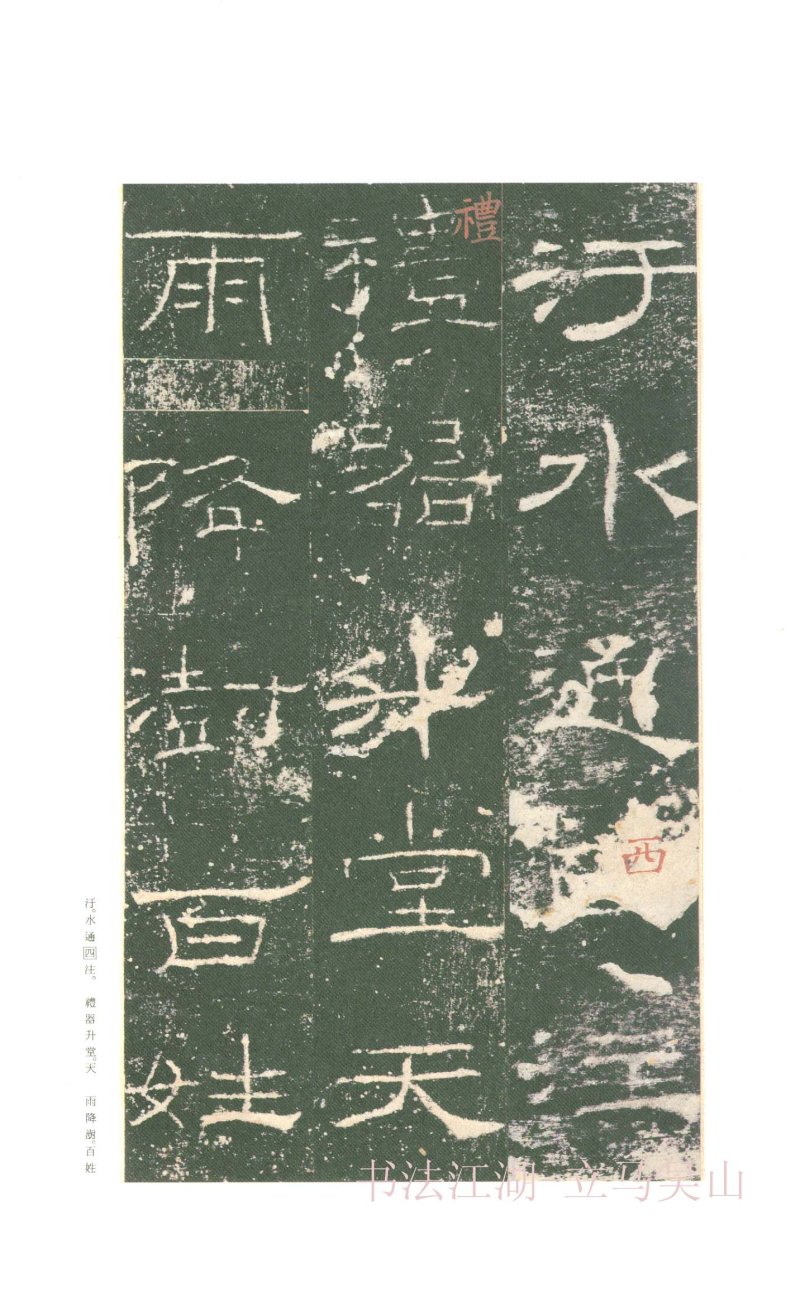 汙水通四注
禮器升堂天
雨降澍百姓
禮
西
汙。水通四注。 禮器升堂。天 雨降澍。百姓
书法江湖 立马吴山